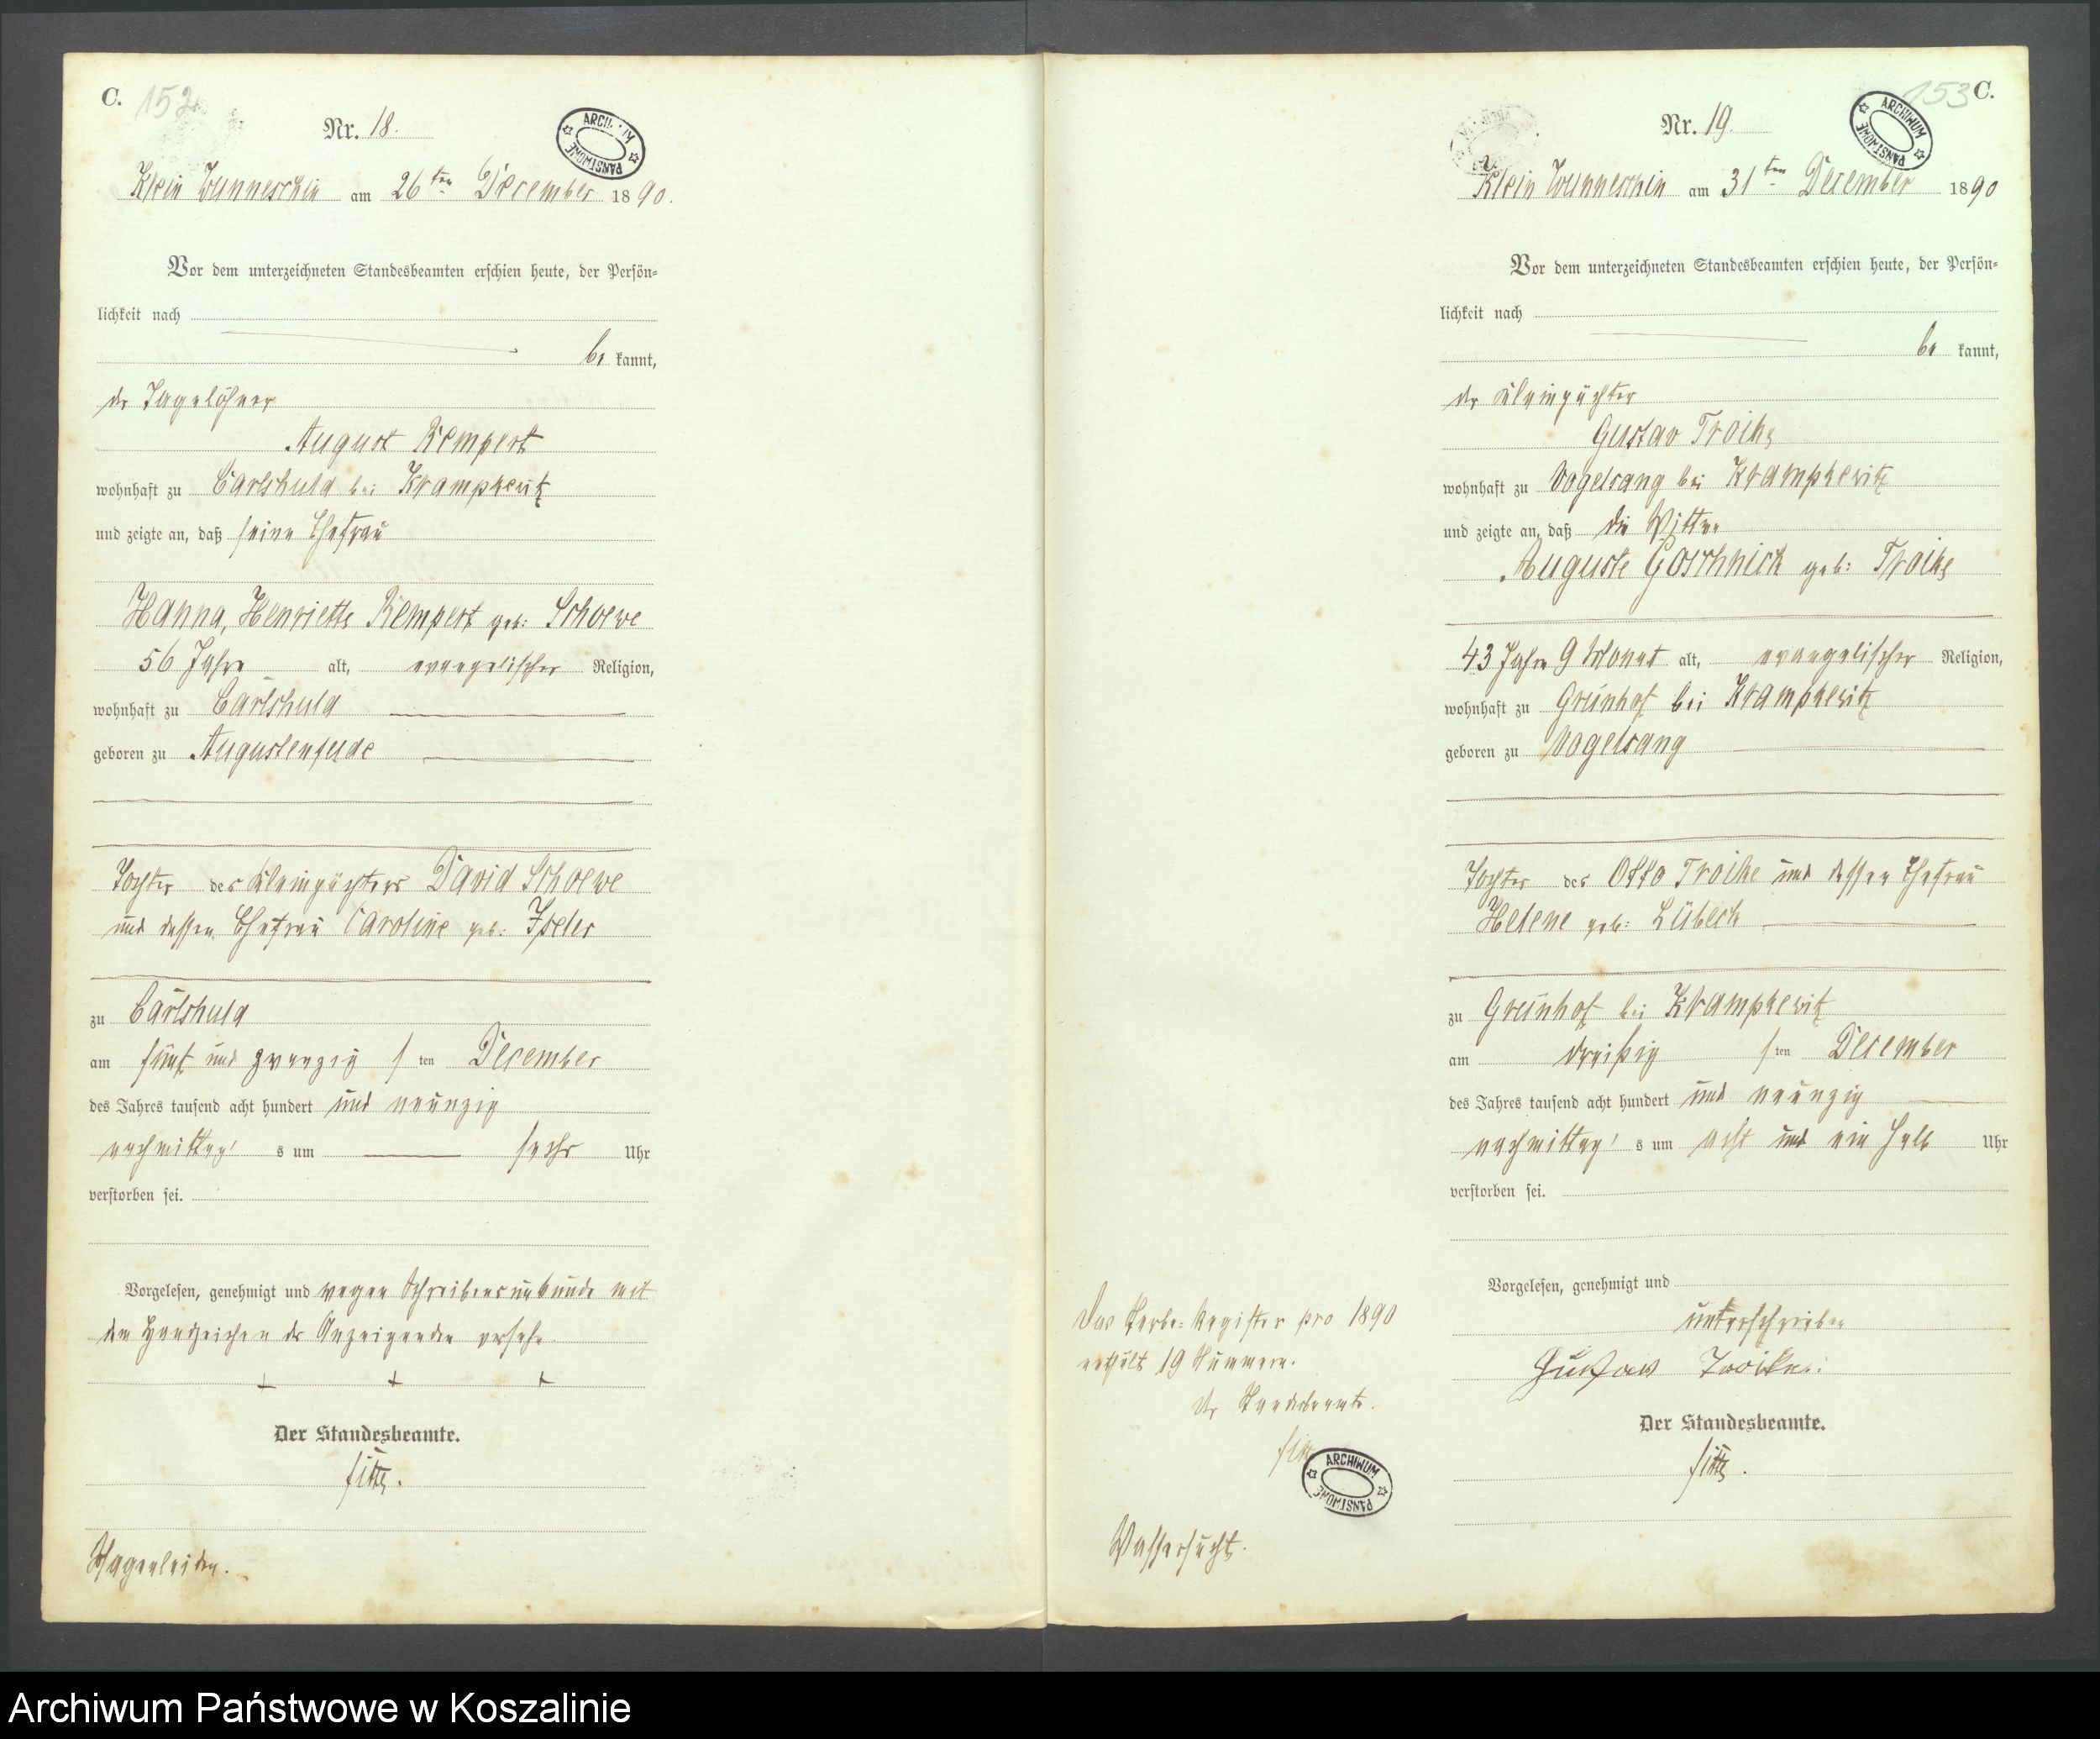 C. 152
Nr. 18.
ARCHIWUM PAŃSTWOWE
Klein Wunneschin am 26ten December 1890.
Vor dem unterzeichneten Standesbeamten erschien heute, der Persön=
lichkeit nach
be kannt,
der Tagelöhner
August Rempert
wohnhaft zu Carlshuld bei Krampkewitz
und zeigte an, daß seine Ehefrau
Hanna, Henriette Rempert geb: Schoewe
56 Jahre alt, evangelischer Religion,
wohnhaft zu Carlshuld
geboren zu Augustenfelde
Tochter des Kleinpächters David Schoewe
und dessen Ehefrau Caroline geb:
zu Carlshuld
am fünf und zwanzig sten December
des Jahres tausend acht hundert und neunzig
nachmittag s um sechs Uhr
verstorben sei.
Vorgelesen, genehmigt und wegen Schreibensunkunde mit
dem Handzeichen des Anzeigenden versehen
+ + +
Der Standesbeamte.
Magenleiden.
153 C.
Nr. 19.
ARCHIWUM PAŃSTWOWE
Klein Wunneschin am 31ten December 1890
Vor dem unterzeichneten Standesbeamten erschien heute, der Persön=
lichkeit nach
be kannt,
der Kleinpächter
Gustav Troike
wohnhaft zu Vogelsang bei Krampkewitz
und zeigte an, daß die Wittwe
Auguste Goschnick geb: Troike
43 Jahre 9 Monat alt, evangelischer Religion,
wohnhaft zu Grünhof bei Krampkewitz
geboren zu Vogelsang
Tochter des Otto Troike und dessen Ehefrau
Helene geb: Lübeck
zu Grünhof bei Krampkewitz
am dreißig sten December
des Jahres tausend acht hundert und neunzig
nachmittag s um acht und ein halb Uhr
verstorben sei.
Vorgelesen, genehmigt und
unterschrieben
Gustav Troike
Der Standesbeamte.
Das Sterbe=Register pro 1890
enthält 19 Nummern.
Der Standesbeamte.
ARCHIWUM PAŃSTWOWE
Wassersucht.
Archiwum Państwowe w Koszalinie